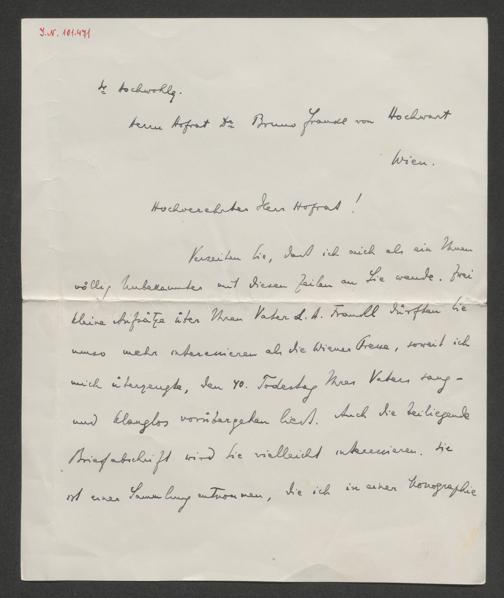 J.N. 101.471
Sr. Hochwohlg.
Herrn Hofrat Dr Bruno Frankl von Hochwart
Wien.
Hochverehrter Herr Hofrat!
Verzeihen Sie, dass ich mich als ein Ihnen
völlig Unbekannter mit diesen Zeilen an Sie wende. Zwei
kleine Aufsätze über Ihren Vater L. A. Frankl dürften Sie
umso mehr interessieren als die Wiener Presse, soweit ich
mich überzeugte, den 40. Todestag Ihres Vaters sang-
und klanglos vorübergehen liess. Auch die beiliegende
Briefabschrift wird Sie vielleicht interessieren. Sie
ist einer Sammlung entnommen, die ich in einer Monographie